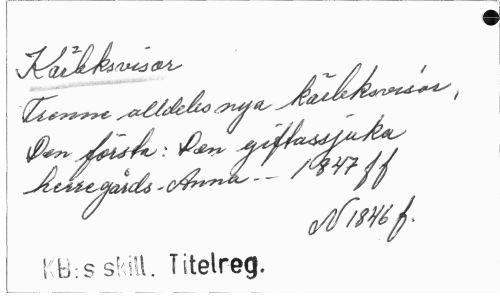 Kärleksvisor
Trenne alldeles nya kärleksvisor,
Den första: Den giftassjuka
herregårds-Anna -- 1847 ff
N 1846 f.
KB:s skill. Titelreg.